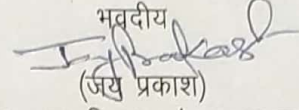 भवदीय
(जय प्रकाश)